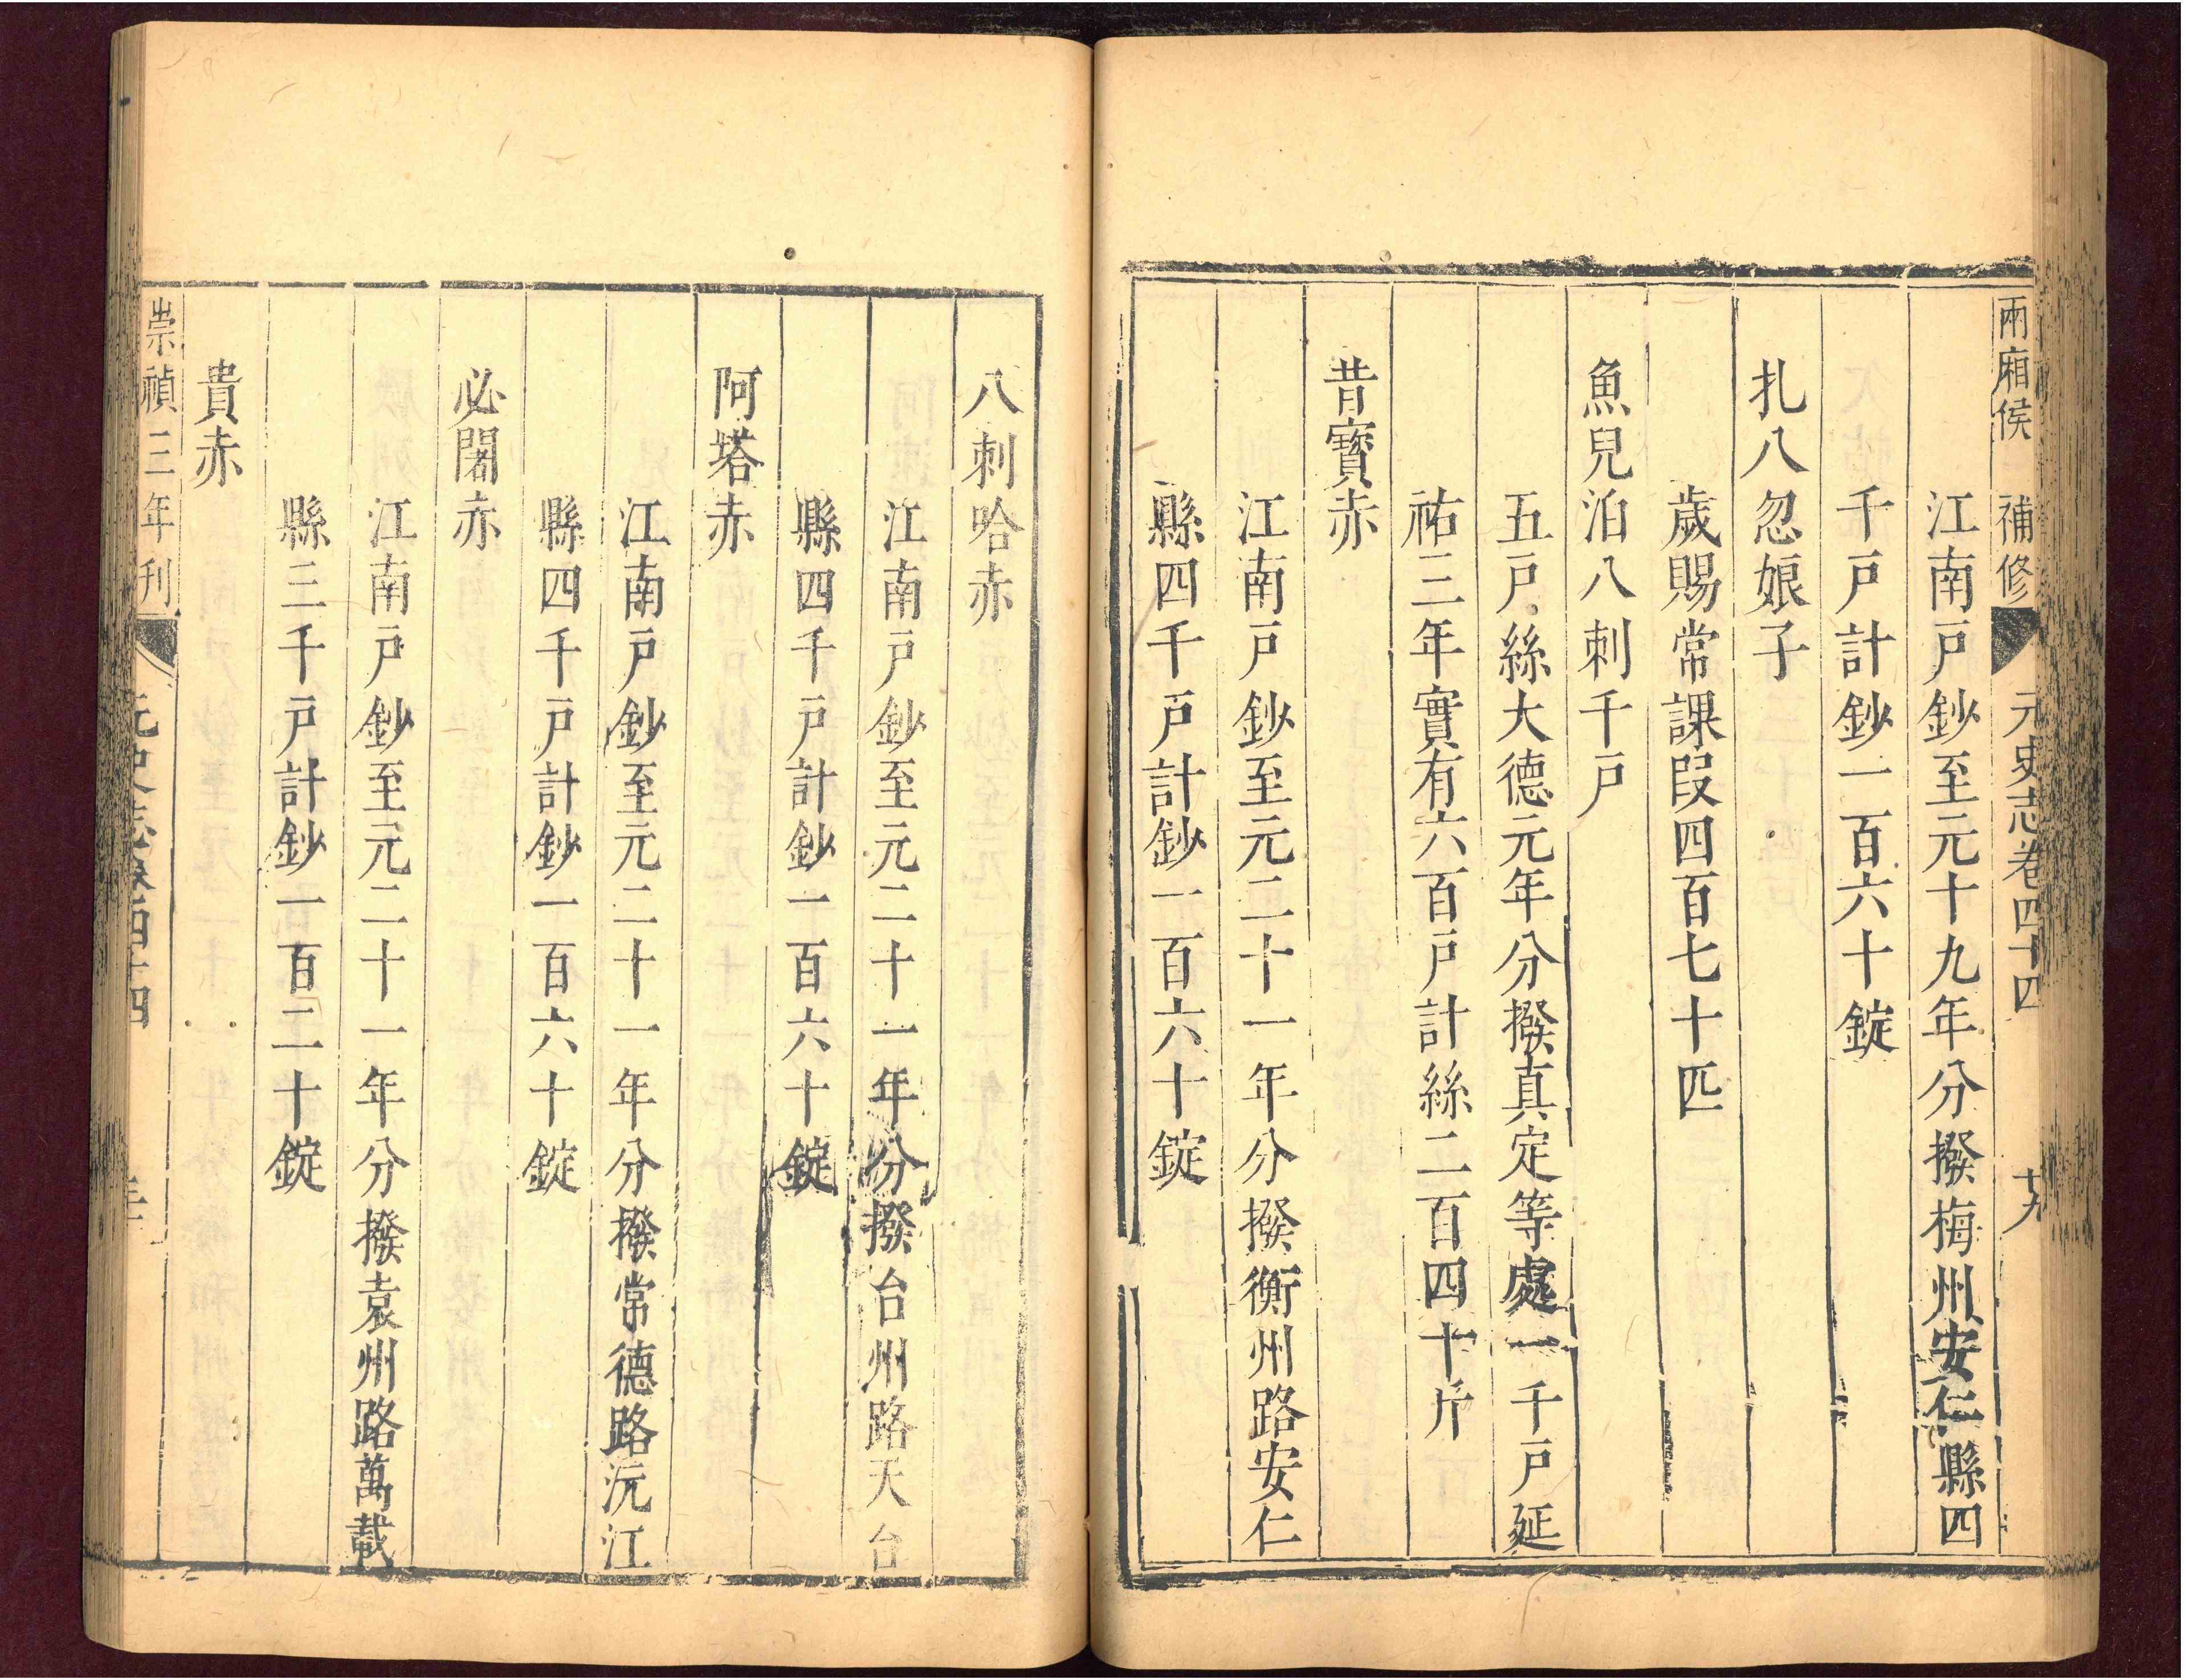 兩廂侯　補修　元史志卷四十四　十九
江南戸鈔至元十九年分撥梅州安仁縣四
千戸計鈔一百六十錠
扎八忽娘子
歲賜常課段四百七十匹
魚兒泊八剌千戸
五戸絲大德元年分撥真定等處一千戸延
祐三年實有六百戸計絲二百四十斤
昔寳赤
江南戸鈔至元二十一年分撥衡州路安仁
縣四千戸計鈔一百六十錠
八剌哈赤
江南戸鈔至元二十一年分撥台州路天台
縣四千戸計鈔一百六十錠
阿塔赤
江南戸鈔至元二十一年分撥常德路沅江
縣四千戸計鈔一百六十錠
必闍赤
江南戸鈔至元二十一年分撥袁州路萬載
縣三千戸計鈔一百二十錠
貴赤
崇禎三年刊　元史志卷四十四